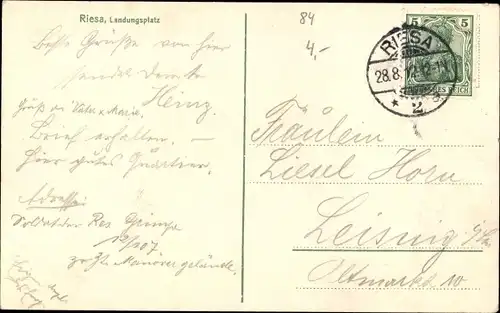 Riesa, Landungsplatz
84
4,-
5 5
RIESA
28.8. 12-1
* 2
DEUTSCHES REICH
Beste Grüße von hier
sendet
Heinz.
Gruß an Vater u. Maria.
Brief erhalten. –
Hier gutes Quartier.
Adresse:
Soldat der Res
12/107
Manövergelände.
Fräulein
Liesel Horn
Leisnig i/Sa.
Altmarkt 10